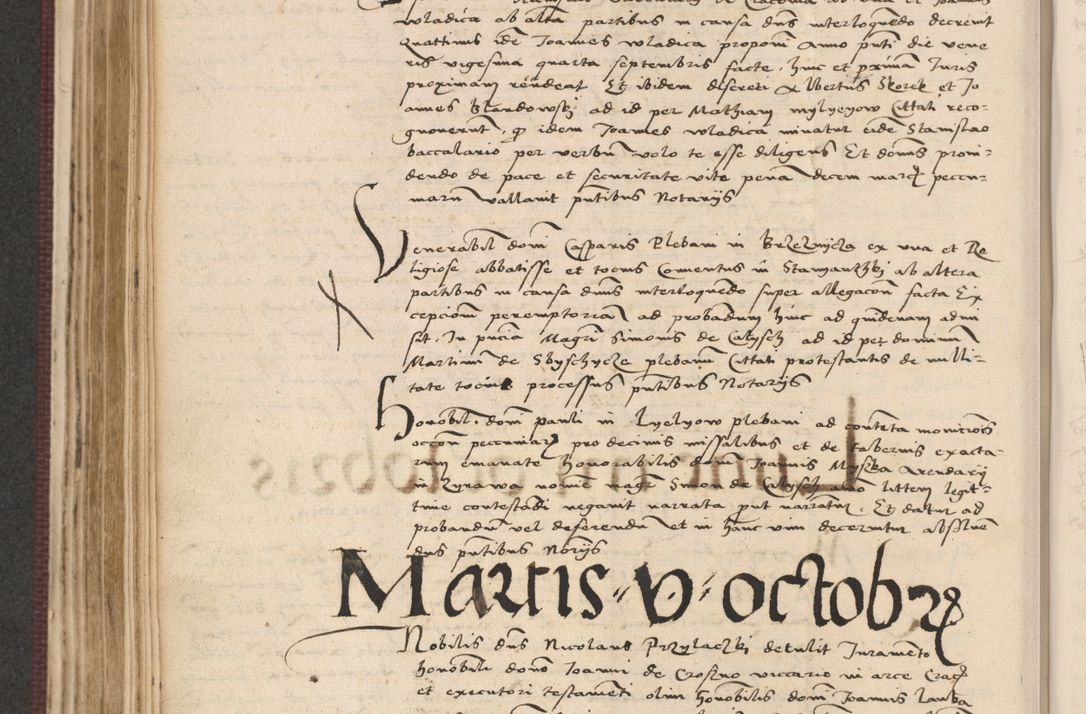 wladica ab altera partibus in causa dns interloquendo decrevit
quattinus idem Joannes wladica proponi anno pnti die vene
ris vigesima quarta septembris facte, hinc et primam Juris
proximam respondeat Et ibidem discreti Albertus Skorek et Jo
annes Brandowski ad id per Mathiam mylyeyow Cittati reco-
gnoverunt, q idem Joannes wladica minatur eidem Stanislao
baccalario per verbum volo te esse diligens Et dominus provi-
dendo de pace et securitate vite pena decem marcar peccu-
niaru vallavit pntibus Notariis
Venerabil domi Casparis Plebani in Brzeznicza ex una et Re
ligiose abbatisse et tocius Conventus in Staniantzki ab altera
partibus in causa dnus interloquendo super allegacon facta Ex
cepcionm peremptoriam ad probandum hinc ad quindenam admi
sit. In pncia Magri Simonis de Calysch ad id per dominum
Martinum de Sbyschycze plebanum Cittati protestantis de nulli-
tate tocius processus pntibus Notariis
Honobil. domi pauli in Lyelyow plebani ad contenta monicionis
occon pecuniar pro decimis missalibus et de tabernis exacta-
rum emanate honorabilis domi Joannis Myszka Arendarii
in Zyrawa nomine magr Simon de Calysch litem legit-
time contestadi negavit narrata put narratur. Et datur ad
probandum vel deferendum et in hanc vim decernitur absolven
dus pntibus Noriis
Martis v octobr
Nobilis dns Nicolaus Przylaczki detulit Jurameto
honobili domo Joanni de Crosno viccario in arce Crac
et executori testameti olim honobilis domi Joannis Lanba